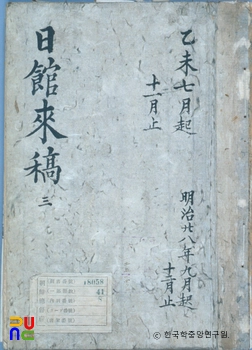 乙未七月起
十一月止
明治廿八年九月起
十二月止
日館來稿 三
18058
41
PUNG
© 한국학중앙연구원